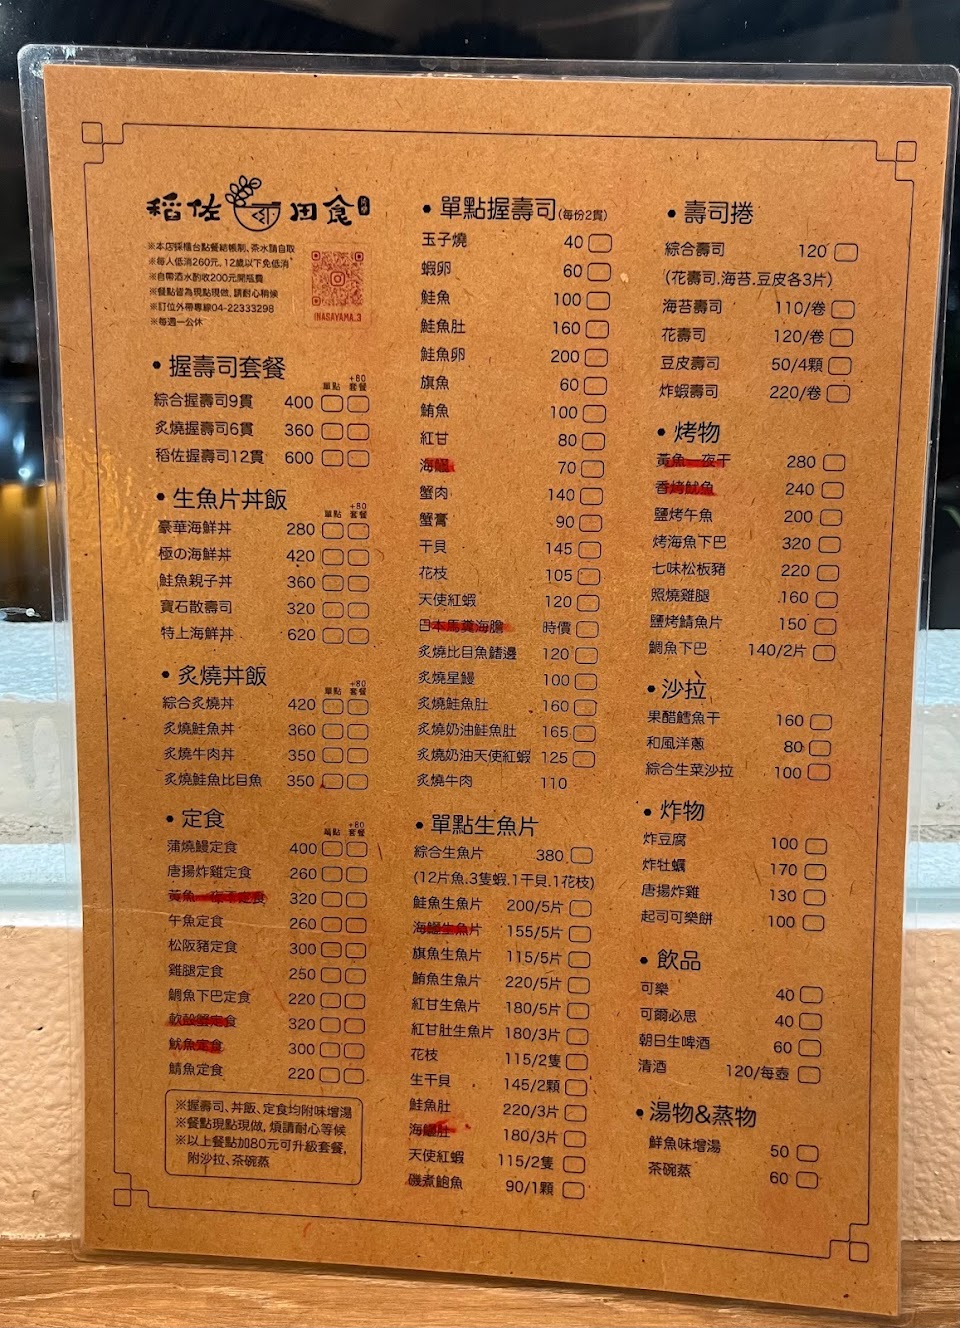 稻佐田食
※本店採櫃台點餐結帳制、茶水請自取
※每人低消260元,12歲以下免低消
※自帶酒水酌收200元開瓶費
※餐點皆為現點現做,請耐心稍候
※訂位外帶專線04-22333298
※每週一公休
INASAYAMA_3
•握壽司套餐
單點 +80套餐
綜合握壽司9貫 400
炙燒握壽司6貫 360
稻佐握壽司12貫 600
•生魚片丼飯
單點 +80套餐
豪華海鮮丼 280
極の海鮮丼 420
鮭魚親子丼 360
寶石散壽司 320
特上海鮮丼 620
•炙燒丼飯
單點 +80套餐
綜合炙燒丼 420
炙燒鮭魚丼 360
炙燒牛肉丼 350
炙燒鮭魚比目魚 350
•定食
單點 +80套餐
蒲燒鰻定食 400
唐揚炸雞定食 260
黃魚一夜干定食 320
午魚定食 260
松阪豬定食 300
雞腿定食 250
鯛魚下巴定食 220
軟殼蟹定食 320
魷魚定食 300
鯖魚定食 220
※握壽司、丼飯、定食均附味增湯
※餐點現點現做,煩請耐心等候
※以上餐點加80元可升級套餐,
附沙拉、茶碗蒸
•單點握壽司(每份2貫)
玉子燒 40
蝦卵 60
鮭魚 100
鮭魚肚 160
鮭魚卵 200
旗魚 60
鮪魚 100
紅甘 80
海鱺 70
蟹肉 140
蟹膏 90
干貝 145
花枝 105
天使紅蝦 120
日本馬糞海膽 時價
炙燒比目魚鰭邊 120
炙燒星鰻 100
炙燒鮭魚肚 160
炙燒奶油鮭魚肚 165
炙燒奶油天使紅蝦 125
炙燒牛肉 110
•單點生魚片
綜合生魚片 380
(12片魚.3隻蝦.1干貝.1花枝)
鮭魚生魚片 200/5片
海鱺生魚片 155/5片
旗魚生魚片 115/5片
鮪魚生魚片 220/5片
紅甘生魚片 180/5片
紅甘肚生魚片 180/3片
花枝 115/2隻
生干貝 145/2顆
鮭魚肚 220/3片
海鱺肚 180/3片
天使紅蝦 115/2隻
磯煮鮑魚 90/1顆
•壽司捲
綜合壽司 120
(花壽司.海苔.豆皮各3片)
海苔壽司 110/卷
花壽司 120/卷
豆皮壽司 50/4顆
炸蝦壽司 220/卷
•烤物
黃魚一夜干 280
香烤魷魚 240
鹽烤午魚 200
烤海魚下巴 320
七味松板豬 220
照燒雞腿 160
鹽烤鯖魚片 150
鯛魚下巴 140/2片
•沙拉
果醋鱈魚干 160
和風洋蔥 80
綜合生菜沙拉 100
•炸物
炸豆腐 100
炸牡蠣 170
唐揚炸雞 130
起司可樂餅 100
•飲品
可樂 40
可爾必思 40
朝日生啤酒 60
清酒 120/每壺
•湯物&蒸物
鮮魚味增湯 50
茶碗蒸 60